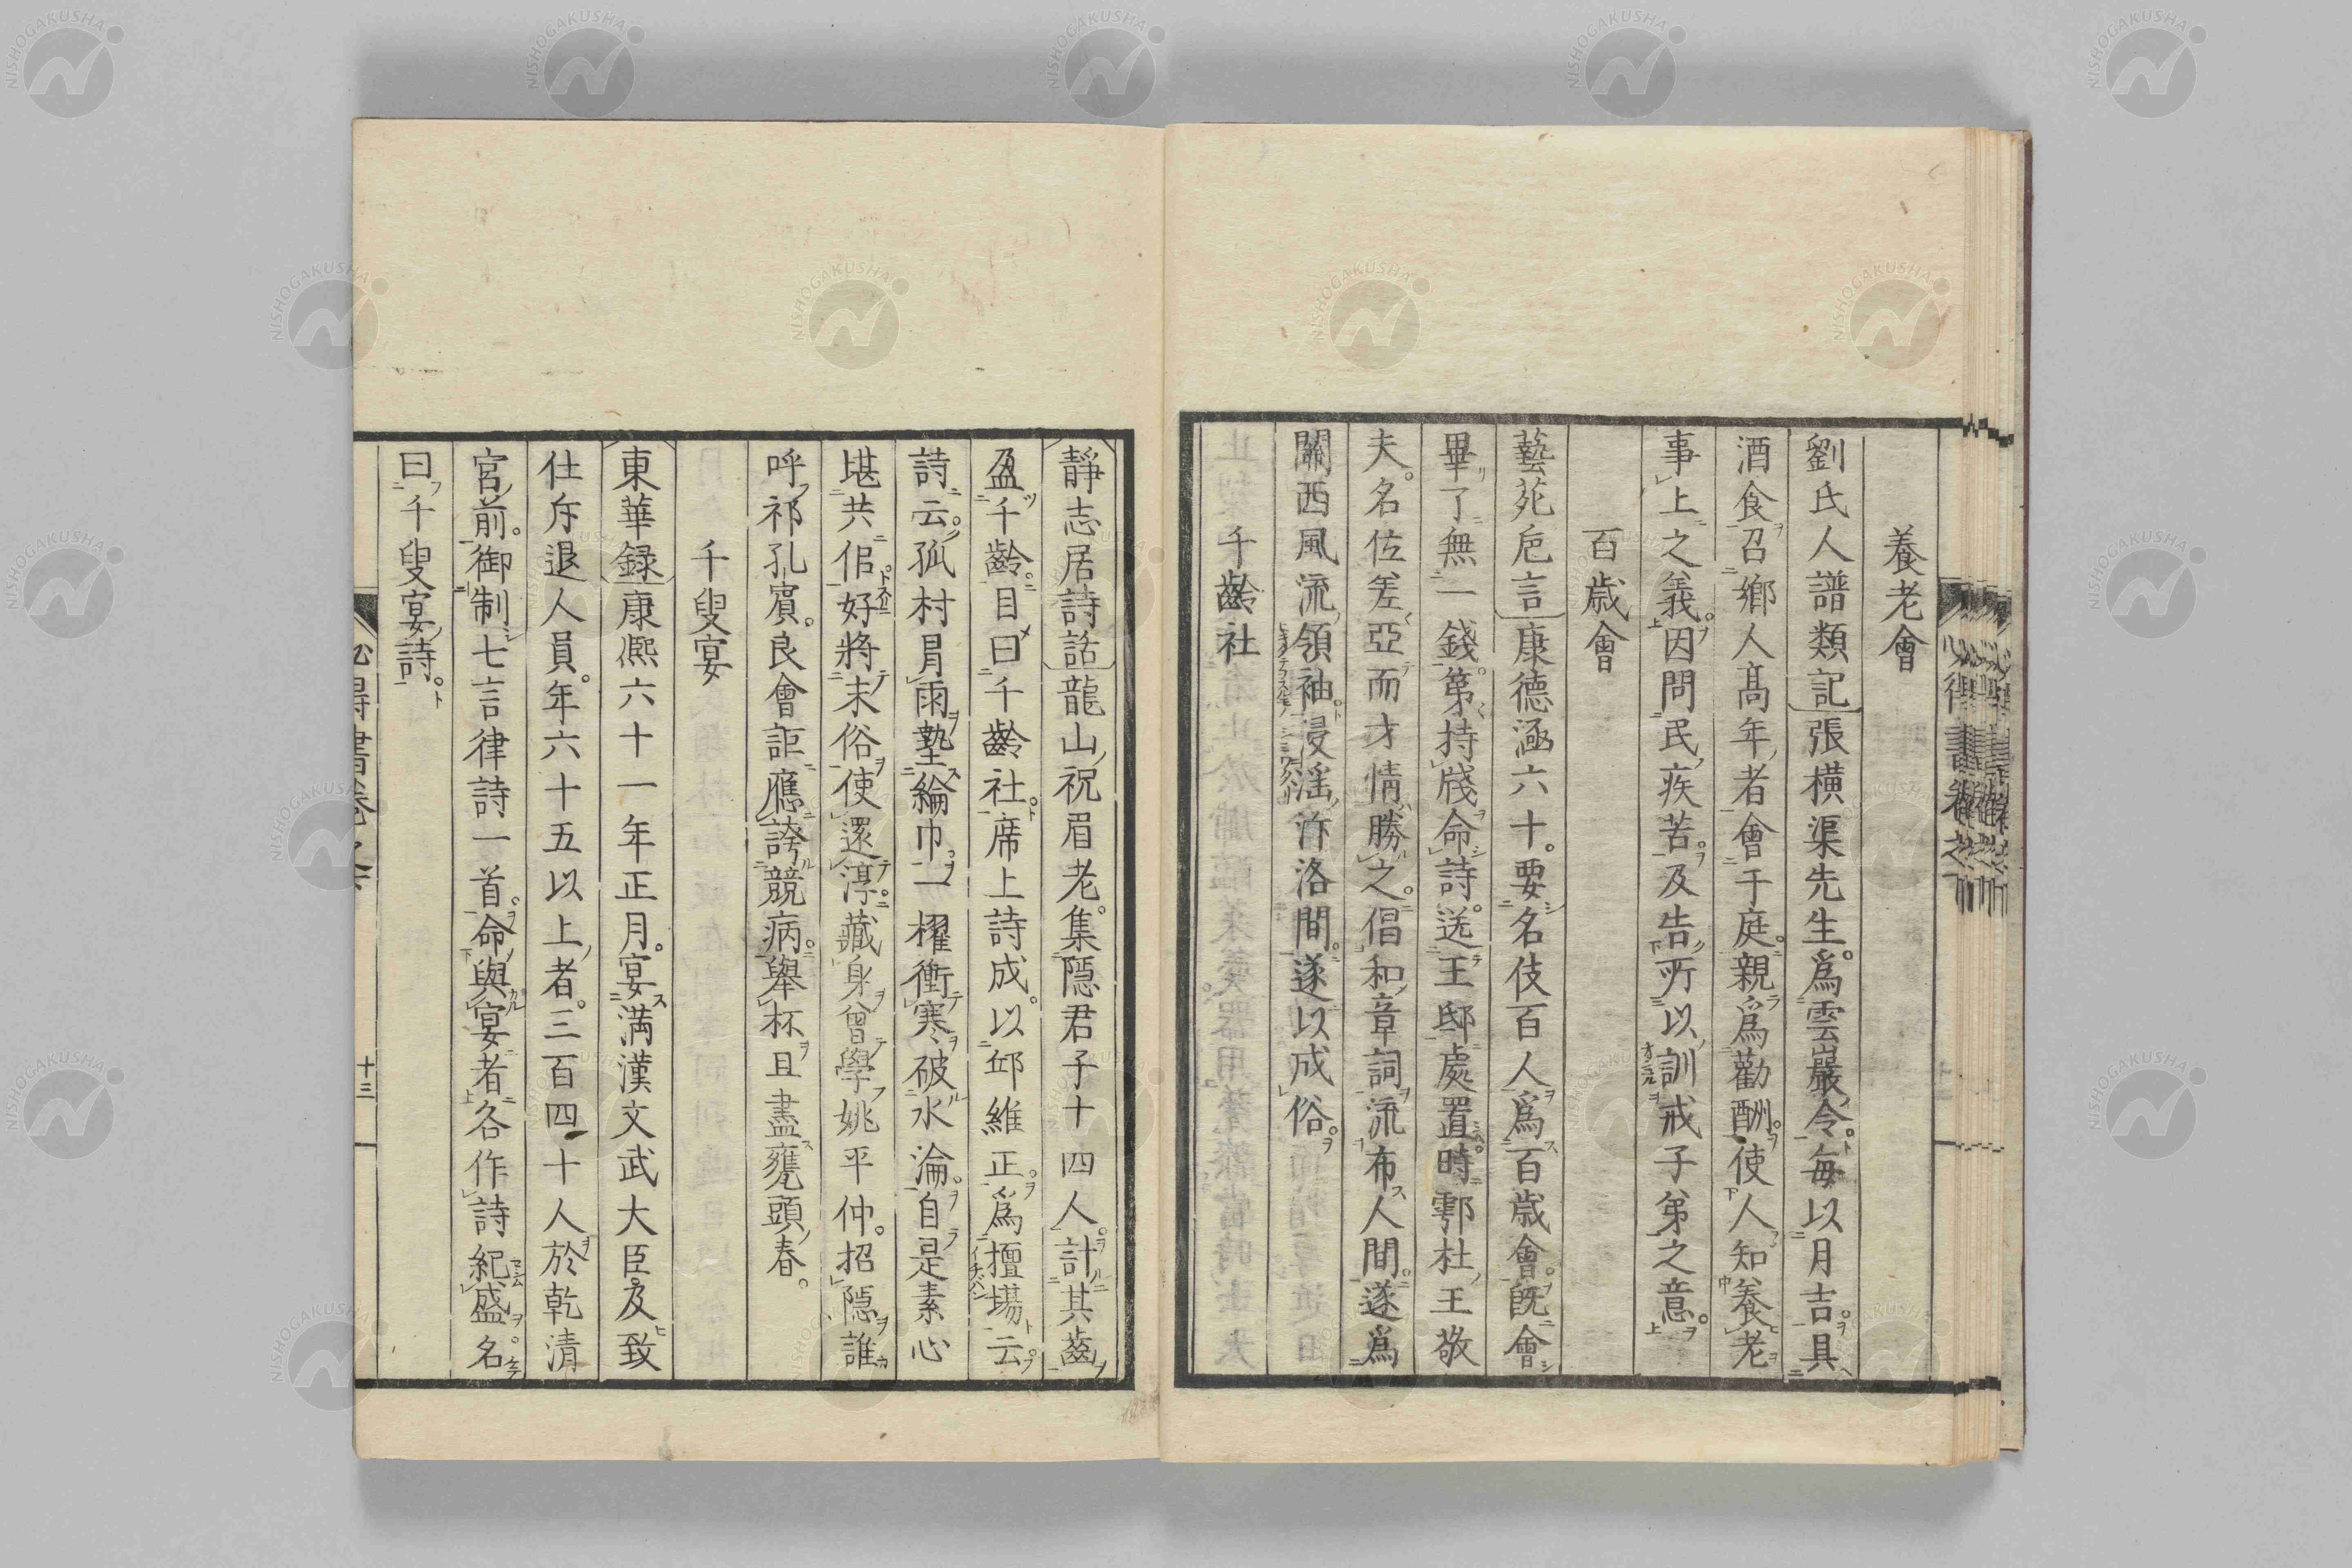 養老會
劉氏人譜類記張橫渠先生。爲雲巖令。每以月吉。具
酒食召鄉人高年者會于庭。親爲勸酬。使人知養老
事上之義。因問民疾苦。及告所以訓戒子弟之意。
百歲會
藝苑巵言康德涵六十。要名伎百人爲百歲會。既會
畢了無一錢。第持牋命詩。送王邸處置。時鄠杜王敬
夫。名位差亞而才情勝之。倡和章詞流布人間。遂爲
關西風流領袖。浸淫汴洛間。遂以成俗。
千齡社
靜志居詩話龍山祝眉老。集隱君子十四人。計其齒
盈千齡。目曰千齡社。席上詩成。以邱維正。爲擅場云。
詩云。孤村冐雨墊綸巾。一櫂衝寒破水淪。自是素心
堪共侶。好將末俗使還淳。藏身曾學姚平仲。招隱誰
呼祁孔賓。良會詎應誇競病。舉杯且盡甕頭春。
千叟宴
東華録康熙六十一年正月。宴滿漢文武大臣及致
仕斥退人員。年六十五以上者。三百四十人於乾清
宮前。御制七言律詩一首。命與宴者各作詩紀盛。名
曰千叟宴詩。
十三
NISHOGAKUSHA